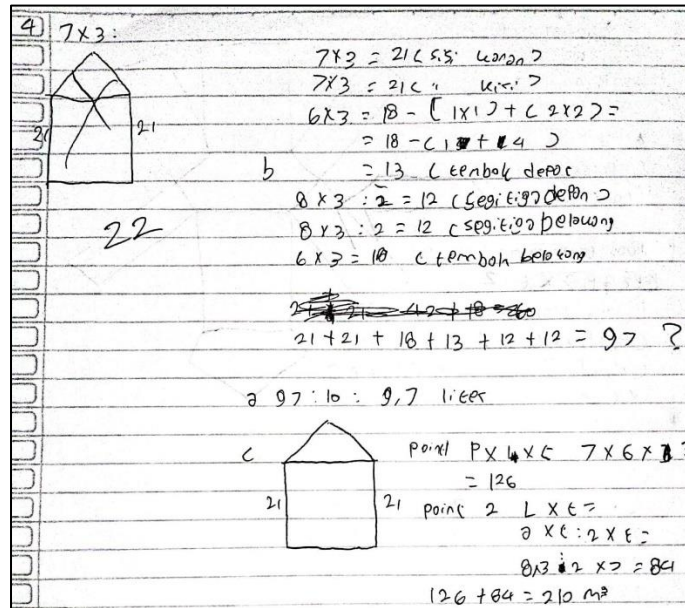 4 7x3:
7x3 = 21 ( sisi kanan )
7x3 = 21 ( " kiri )
6x3 = 18 - ( 1x1 ) + ( 2x2 ) =
= 18 - ( 1 + 4 )
b = 13 ( tembok depar
21 21
8 x 3 : 2 = 12 ( segitiga depan )
8 x 3 : 2 = 12 ( segitiga belakang
22
6 x 3 = 18 ( tembok belakang
21 + 21 + 18 + 13 + 12 + 12 = 97 ?
a 97 : 10 : 9,7 liter
c point P x L x t 7 x 6 x 3
= 126
21 21
point 2 L x t =
a x t : 2 x t =
8x3 : 2 x 7 = 84
126 + 84 = 210 m³